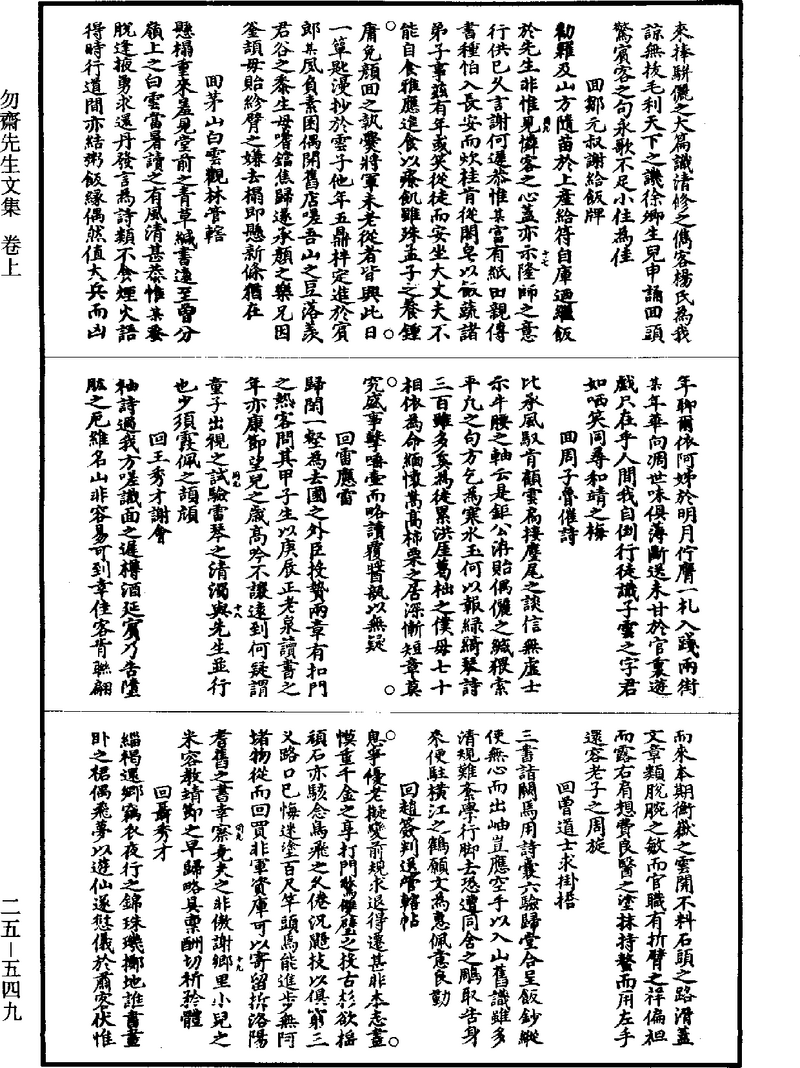 來捧駢儷之大篇識清修之儁客楊氏為我
諒無拔毛利天下之譏徐卿生兒申誦回頭
驚賓客之句永歌不足小住為佳
回鄒元叔謝給飯牌
勸耀及山方隨苗於上産給符自庫迺繼飯
於先生非惟見憐客之心蓋亦示隆師之意
行供已久言謝何遲恭惟某富有紙田親傳
書種怕入長安而炊桂肯從閑皂以飯蔬諸
弟子事茲有年或笑從徒而安坐大丈夫不
能自食雅應造食以療飢雖珠孟子之養鍾
庸免顏回之執爨將軍未老從者皆興此日
一簞匙漫抄於雲子他年五鼎拌定進於賓
郎某風負素困偶開舊店嗟吾山之豆落羨
君谷之黍生毋嗜鐺焦歸遂承顏之樂兄因
釜頡毋貽紾臂之嫌去榻即懸新條猶在
回茅山白雲觀林管轄
懸榻重來羞見堂前之青草緘書遠至曾分
嶺上之白雲當暑讀之有風清甚恭惟某蚤
脫逢掖勇求還丹發言為詩類不食煙火語
得時行道間亦結粥飯緣偶然值大兵而凶
年聊爾依阿姊於明月佇膺一札入踐兩街
某年華向凋世味俱薄斷送未甘於官裏遊
戲只在乎人間我自倒行從識子雲之字君
如哂笑同尋和靖之梅
回周子膺催詩
比承風馭肯顧雲扃接麈尾之談信無虛士
示牛腰之軸云是鉅公游貽偶儷之緘猥索
平凡之句方乞為寒水玉何以報綠綺琴詩
三百雖多奚為從累洪厓葛柚之僕毋七十
相依為命緬懷嵩高柿栗之居深慚短章莫
究盛事擊唾壺而略讀覆醬瓿以無疑
回雷應雷
歸開一壑為去國之外臣投贄兩章有扣門
之熱客問其甲子生以庚辰正老泉讀書之
年亦康節望兒之歲高吟不讓遠到何疑謂
童子出視之試驗雷琴之清濁與先生並行
也少須霞佩之頡頏
回王秀才謝會
袖詩過我方嗟識面之遲樽酒延賓乃吿墮
肱之厄維名山非容易可到幸佳客肯聯翩
而來本期衡嶽之雲開不料石頭之路滑蓋
文章類脫腕之敏而官職有折臂之祥偏袒
而露右肩想費良醫之塗抹持螯而用左手
還容老子之周旋
回曾道士求掛搭
三書詣關馬用詩囊六驗歸堂合呈飯鈔縱
使無心而出岫豈應空手以入山舊識雖多
清規難紊學行脚去恐遭同舍之鵰取吿身
來便駐橫江之鶴願文為惠佩意良勤
回趙簽判送管轄帖
息爭優老擬變前規求退得遷甚非本志畫
慔重千金之享打門驚雙璧之投古杉欲搖
頑石亦駭念鳥飛之久倦況鼯技以俱窮三
义路口已悔迷塗百尺竿頭焉能進步無阿
堵物從而回買非軍資庫可以寄留折洛陽
耆舊之書幸察堯夫之非傲謝鄉里小兒之
米容教靖節之早歸略具稟酬切祈矜體
回聶秀才
緇褐還鄉竊衣夜行之錦珠璣擲地誰書畫
卧之裙偶飛夢以遊仙遂愆儀於肅客伏惟
勿齋先生文集　卷上
二五—五四九